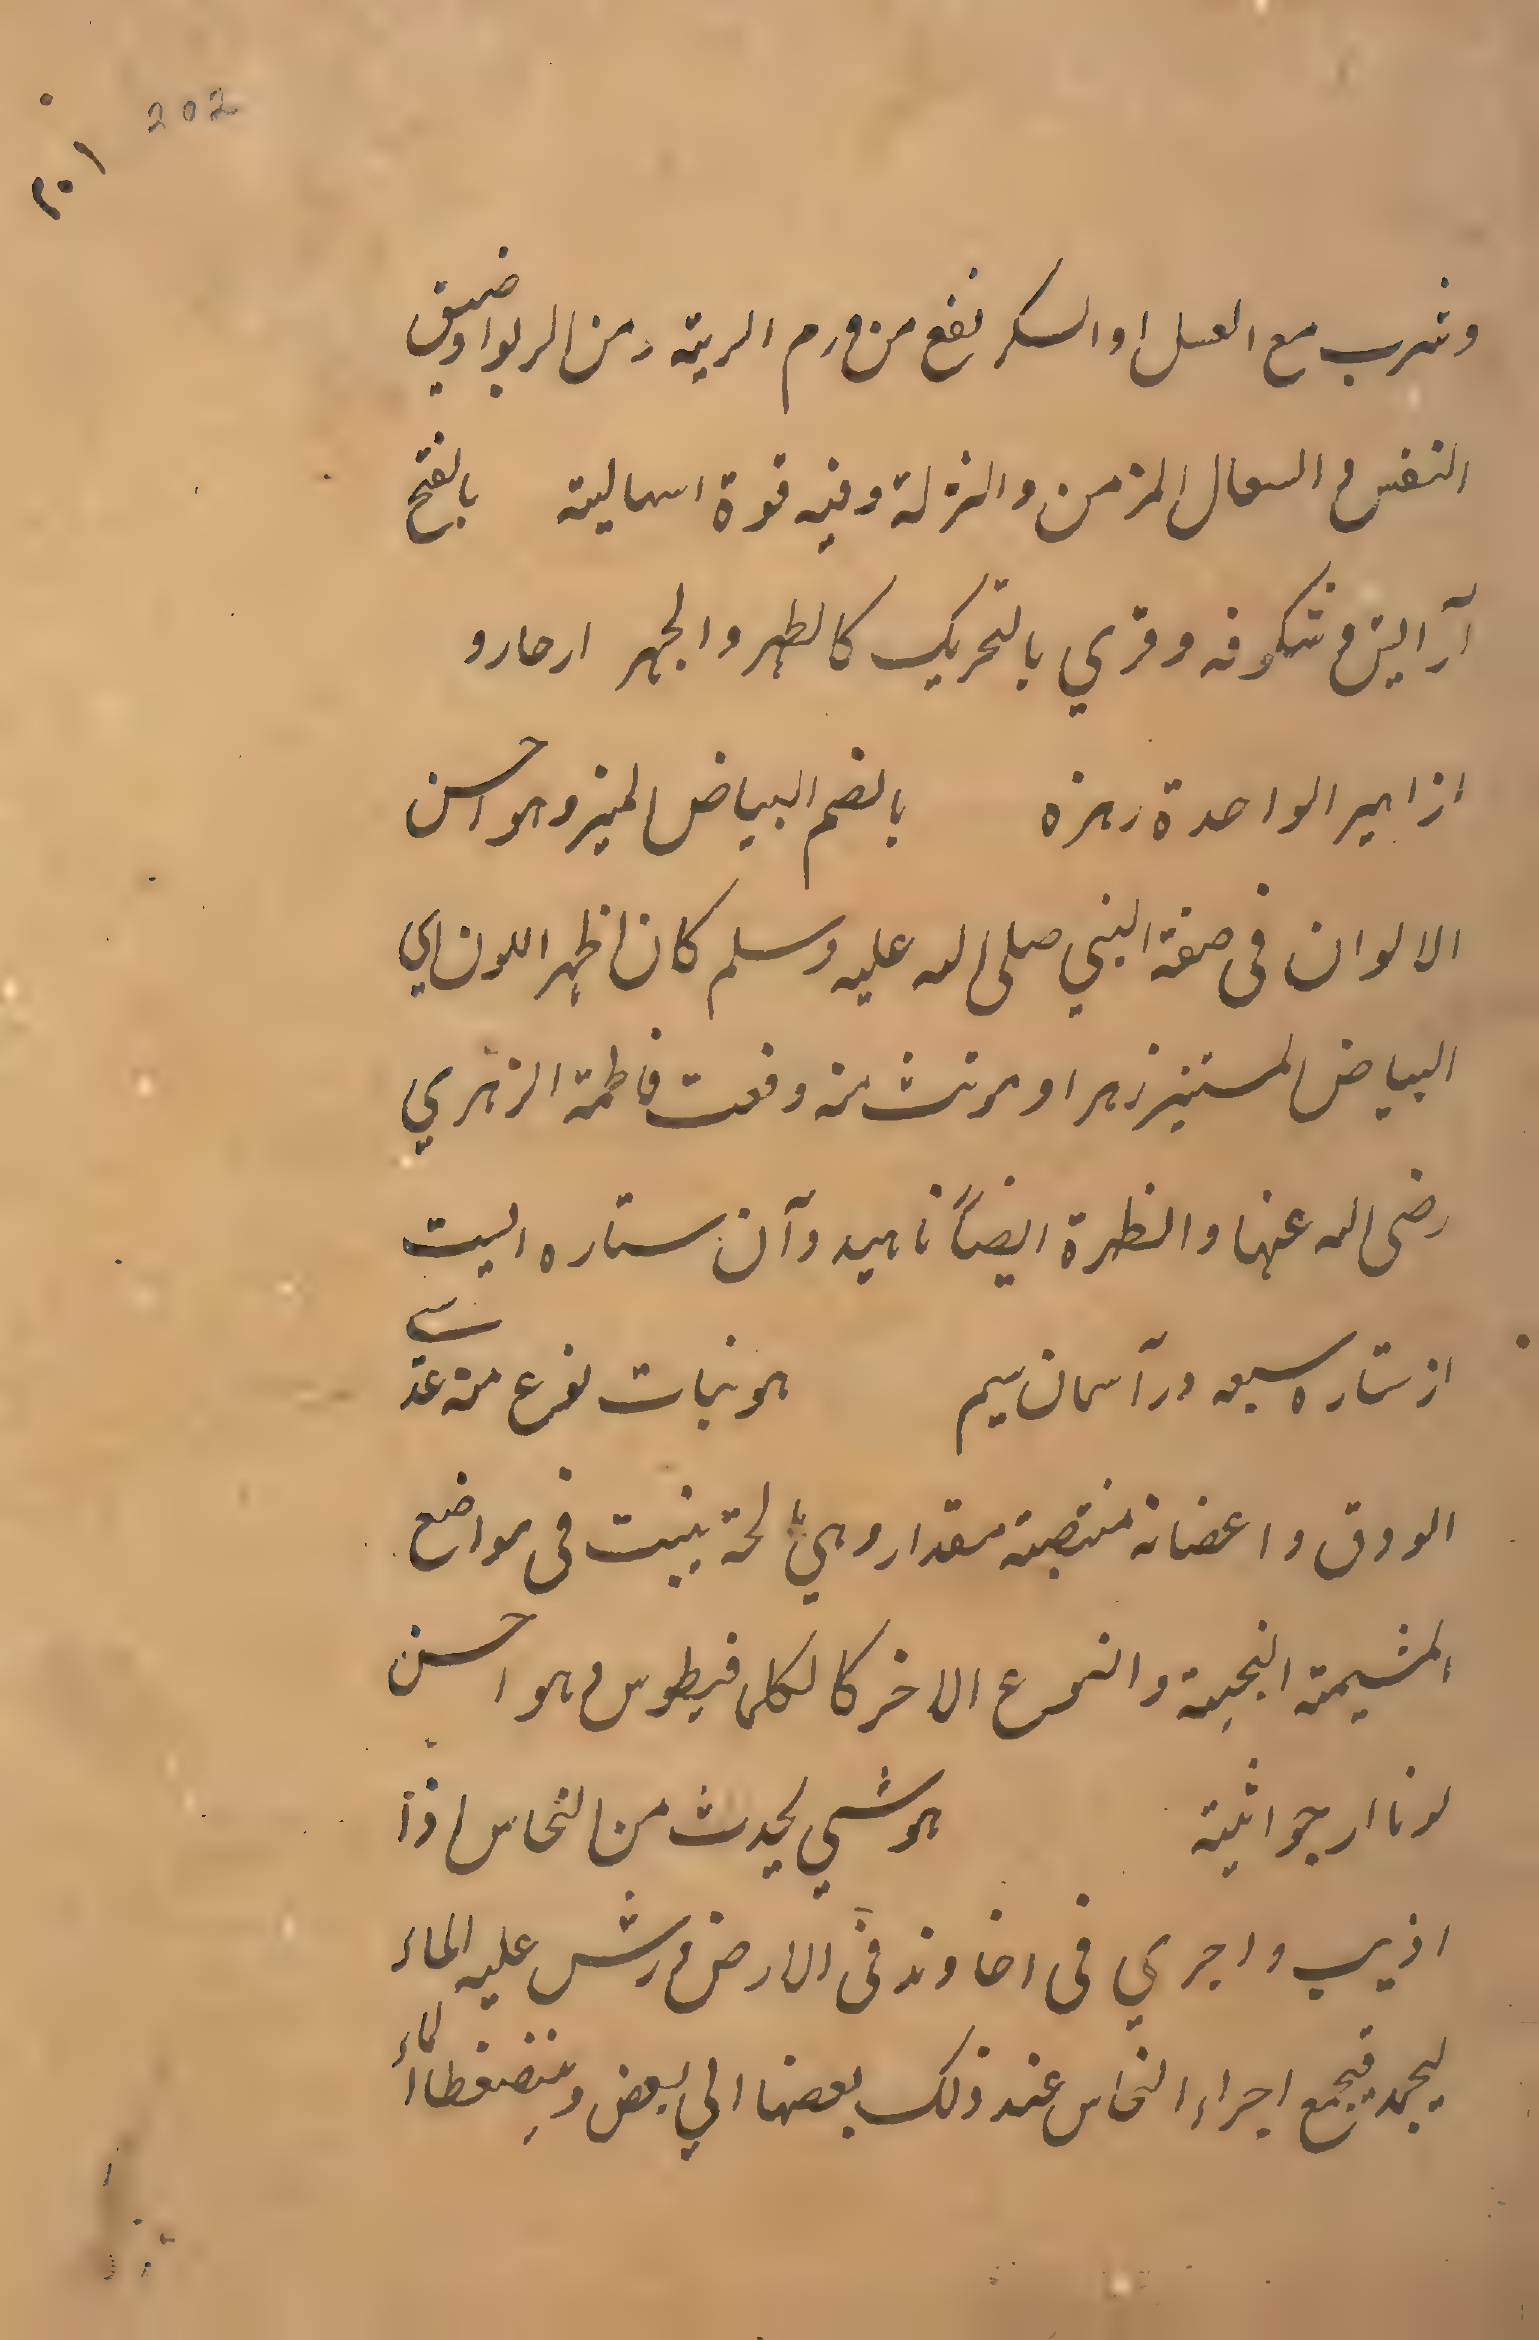 202
۲۰۱
وشرب مع العسل او السكر نفع من ورم الرية ومن الربو او ضيق
النفس و السعال المزمن والنزلة وفيه قوة اسهالية بالفتح
آرايش و شكوفه وقري بالتحريك كالطهر والجهر ارهارو
ازاهير الواحدة زهزه بالضم البياض المنير وهو احسن
الالوان فى صفة النبي صلى الله عليه وسلم كان اظهر اللون اي
البياض المستنير زهرا و مونث منه وفعت فاطمة الزهري
رضى الله عنها والظهرة ايضاً ناهيد وآن ستاره اليست
از ستاره سبعه در آسمان سيم هو نبات نوع منه عدسى
الورق واغصانه منتصبة مقدار وهي لحة ينبت فى مواضع
المشيمة النجية والنوع الاخر كالكمافيطوس وهو احسن
لونا ارجوانية هو شي يحدث من النحاس اذا
اذيب واجري فى اخاوند فى الارض ورش عليه الماء
ليجمد فيجمع اجراء النحاس عند ذلك بعضها الي بعض وينضغط الماء